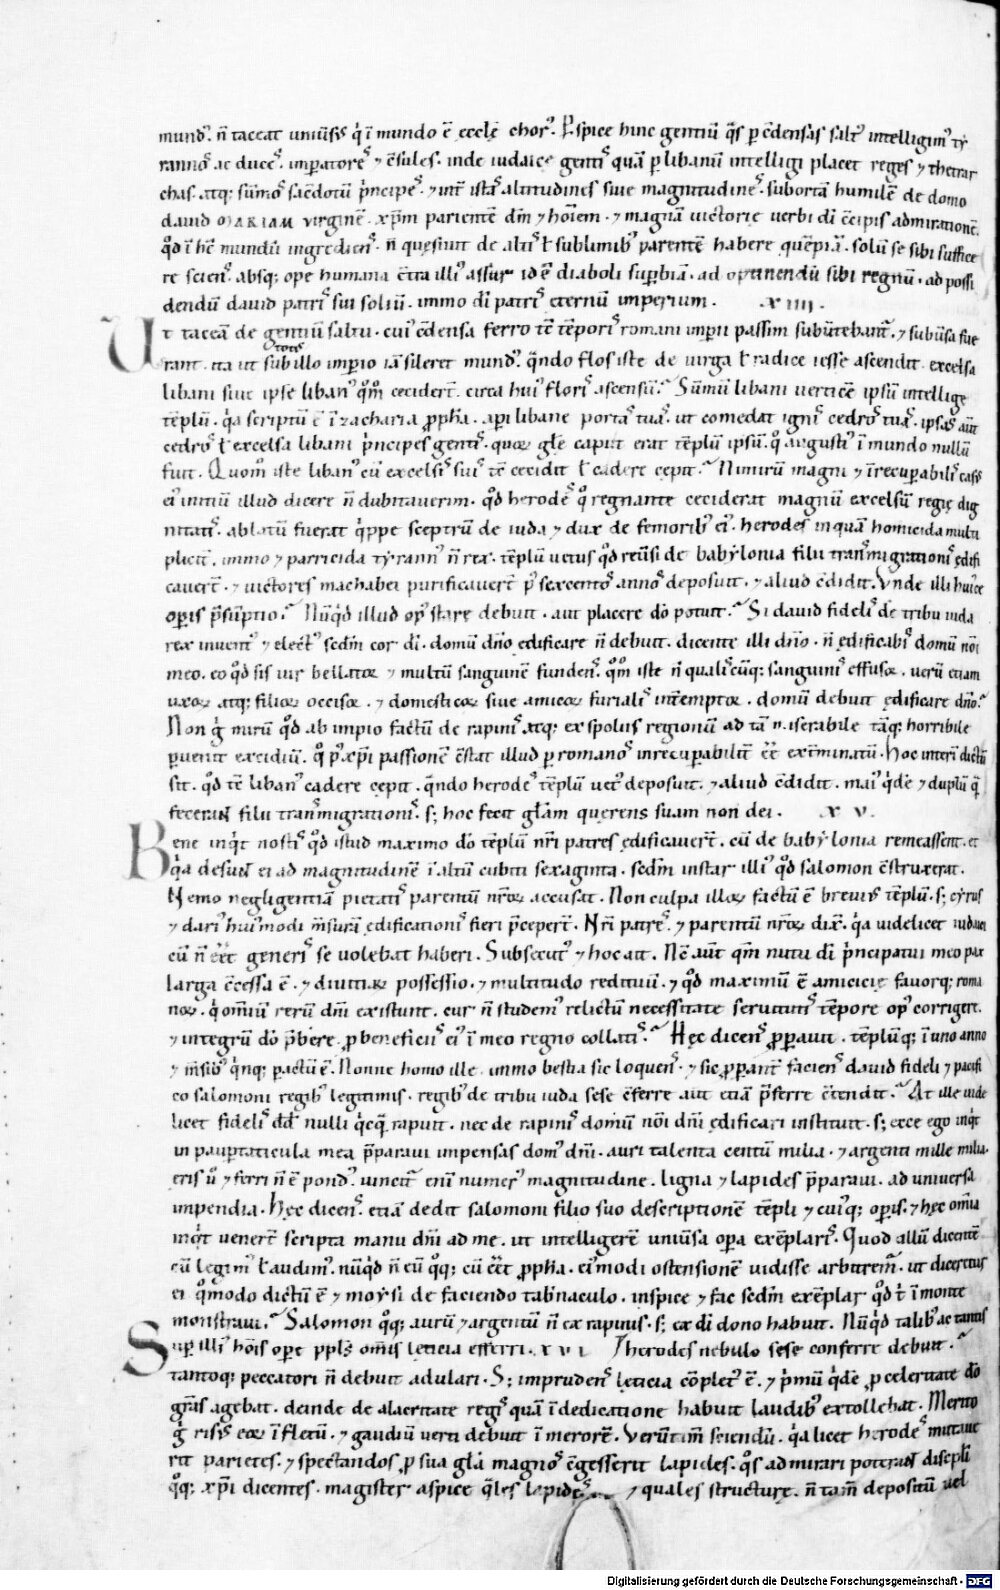 mund᷒. n̄ taceat uniūsis q̇ ī mundo ē ecclę chor᷒. P̱spice hinc gentiū q̄s p̱ c̄densas salt᷒ intelligim᷒ ty
ranno᷒s ac duces. imp̱atores ⁊ c̄sules. inde iudaicę gentis quā p̱ libanū intelligi placet reges ⁊ thetrar
chas. atq; sūmo᷒s sac̄dotū p̄ncipes. ⁊ int̄ istas altitudines siue magnitudines. subortā humilē de domo
dauid MARIAM virginē. xp̄m parientē dm̄ ⁊ hoīem. ⁊ magnā uictorię verbi dī c̄cipis admirationē.
qd̄ ī hc̄ mundū ingrediens. n̄ quęsiuit de altis ł sublimib᷒ parentē habere quēpiā. solū se sibi suffice
re sciens. absq; ope humana c̄tra illi᷒ assur id ē diaboli sup̱biā. ad optinendū sibi regnū. ad possi
dendū dauid patris sui soliū. immo dī patris eternū imperium. XIIII.
Ut taceā de gentiū saltu. cui᷒ c̄densa ferro tc̄ tēporis romani imp̱ii passim subūtebant̄. ⁊ subūsa fue
rant. ita ut sub illo imp̱io totus iā sileret mund᷒. q̄ndo flos iste de uirga ł radice iesse ascendit. excelsa
libani siue ipse liban᷒ qm̊ cecider̄t. circa hui᷒ floris ascensū? Sūmū libani verticē ipsū intellige
tēplū. q̇a scriptū ē ī zacharia p̱pha. ap̱i libane portas tuas. ut comedat ignis cedros tuas. ipsas aūt
cedros ł excelsa libani p̄ncipes gentis. quoꝝ glę caput erat tēplū ipsū. q̊ augusti᷒ ī mundo nullū
fuit. Quom̊ iste liban᷒ cū excelsis suis tc̄ cecidit ł cadere cepit? Nimirū magni ⁊ īrecup̱abilis cas᷒
ei᷒ initiū illud dicere n̄ dubitauerim. qd̄ herodes q̊ regnante ceciderat magnū excelsū regię dig
nitatis. ablatū fuerat q̇ppe sceptrū de iuda ⁊ dux de femorib᷒ ei᷒. herodes inquā homicida multi
plicit̄. immo ⁊ parricida tyrann᷒ n̄ rex. tēplū uetus qd̄ reūsi de babylonia filii transmigrationis ędifi
cauer̄t. ⁊ uictores machabei purificauer̄t p᷒ sexcentos annos deposuit. ⁊ aliud c̄didit. Vnde illi hui᷒ce
op̱is p̄sūptio? Nūq̇d illud op᷒ stare debuit. aut placere dō potuit? Si dauid fidelis de tribu iuda
rex inuent᷒ ⁊ elect᷒ scd̄m cor dī. domū dn̄o edificare n̄ debuit. dicente illi dn̄o. n̄ ędificabis domū nōi
meo. eo qd̄ sis uir bellatoꝝ ⁊ multū sanguinē fundens. qm̊ iste n̄ qualiscūq; sanguinis effusoꝝ. verū etiam
uxoꝝ atq; filioꝝ occisoꝝ. ⁊ domesticoꝝ siue amicoꝝ furialis int̄emptoꝝ. domū debuit ędificare dn̄o?
Non ḡ mirū qd̄ ab impio factū de rapinis atq; ex spoliis regionū ad tā miserabile tāq; horribile
p̱uenit excidiū. q̊ p᷒ xp̄i passionē c̄stat illud p̱ romanos inrecup̱abilit̄ eē ext̄minatū. Hoc int̄ī dictū
sit. qd̄ tc̄ liban᷒ cadere cępit. q̄ndo herodes tēplū uet᷒ deposuit. ⁊ aliud c̄didit. mai᷒ q̇dē ⁊ duplū q̄
fecerant filii transmigrationis. s; hoc fecit glam querens suam non dei. XV.
Bene inq̇t nostis qd̄ istud maximo dō tēplū nr̄i patres ędificauer̄t. cū de babylonia remeassent. et
q̇a desunt ei ad magnitudinē ī altū cubiti sexaginta. scd̄m instar illi᷒ qd̄ salomon c̄struxerat.
Nemo negligentiā pietatis parentū nr̄oꝝ accusat. Non culpa illoꝝ factū ē brevius tēplū. s; cyrus
⁊ dari᷒ hui᷒modi m̄surā ędificationis fieri p̄ceper̄t. Nr̄i patres. ⁊ parentū nr̄oꝝ dix̄. q̇a uidelicet iudaici
cū n̄ eēt generis se volebat haberi. Subsecut᷒ ⁊ hoc ait. Nc̄ aūt qm̄ nutu dī p̄ncipatui meo pax
larga c̄cessa ē. ⁊ diuitiaꝝ possessio. ⁊ multitudo redituū. ⁊ qd̄ maximū ē amicicię fauorq; roma
noꝝ. q̇ omniū rerū dn̄i existunt. cur n̄ studem᷒ relictū necessitate seruitutis tēpore op᷒ corrigere.
⁊ integrū dō p̄bere. p̱ beneficiis ei᷒ ī meo regno collatis? Hęc dicens p̱parauit. tēplūq; ī uno anno
⁊ m̄sib᷒ q̇nq; p̱actū ē. Nonne homo ille. immo bestia sic loquens. ⁊ sic p̱parant̄ faciens dauid fideli ⁊ pacifi
co salomoni regib᷒ legitimis. regib᷒ de tribu iuda sese c̄ferre aut etiā p̄ferre c̄tendit? At ille uide
licet fidelis dd̄ nulli q̇cq̄ rapuit. nec de rapinis domū nōi dn̄i ędificari instituit. s; ecce ego inq̇t
in paup̱taticula mea p̄paraui impensas dom᷒ dn̄i. auri talenta centū milia. ⁊ argenti mille milia.
ęris ů ⁊ ferri n̄ ē pond᷒. vincit̄ enī numer᷒ magnitudine. ligna ⁊ lapides p̄paraui. ad universa
impendia. Hęc dicens. etiā dedit salomoni filio suo descriptionē tēpli ⁊ cui᷒q; op̱is. ⁊ hęc omīa
inq̇t uener̄t scripta manu dn̄i ad me. ut intelligerē uniūsa op̱a exēplaris. Quod aliū dicentē
cū legim᷒ ł audim᷒. nūq̇d n̄ cū q̊q; cū eēt p̱pha. ei᷒modi ostensionē vidisse arbitrem᷒. ut diceretur
ei qm̊odo dictū ē ⁊ moysi de faciendo tab̄naculo. inspice ⁊ fac scd̄m exēplar qd̄ t̄ ī monte
monstraui? Salomon q̊q; aurū ⁊ argentū n̄ ex rapinis. s; ex dī dono habuit. Nūq̇d talib᷒ ac tantis
herodes nebulo sese conferre debuit?
Sup̱ illi᷒ hōis op̱e ppls om̄is lęticia efferri. XVI
tantoq; peccatori n̄ debuit adulari. S; imprudens lęticia cōplet᷒ ē. ⁊ p̄mū q̇dē p̱ celeritate dō
gr̄as agebat. deinde de alacritate regis quā ī dedicatione habuit laudib᷒ extollebat. Merito
ḡ risus eoꝝ ī fletū. ⁊ gaudiū verti debuit ī merorē. Verūtm̄ sciendū. q̇a licet herodes mutaue
rit parietes. ⁊ spectandos p̱ sua glā magnos c̄gesserit lapides. q̊s admirari poterant discipli
q̊q; xp̄i dicentes. magister aspice q̄les lapides ⁊ quales structurę. n̄ tam̄ depositū uel
Digitalisierung gefördert durch die Deutsche Forschungsgemeinschaft - DFG